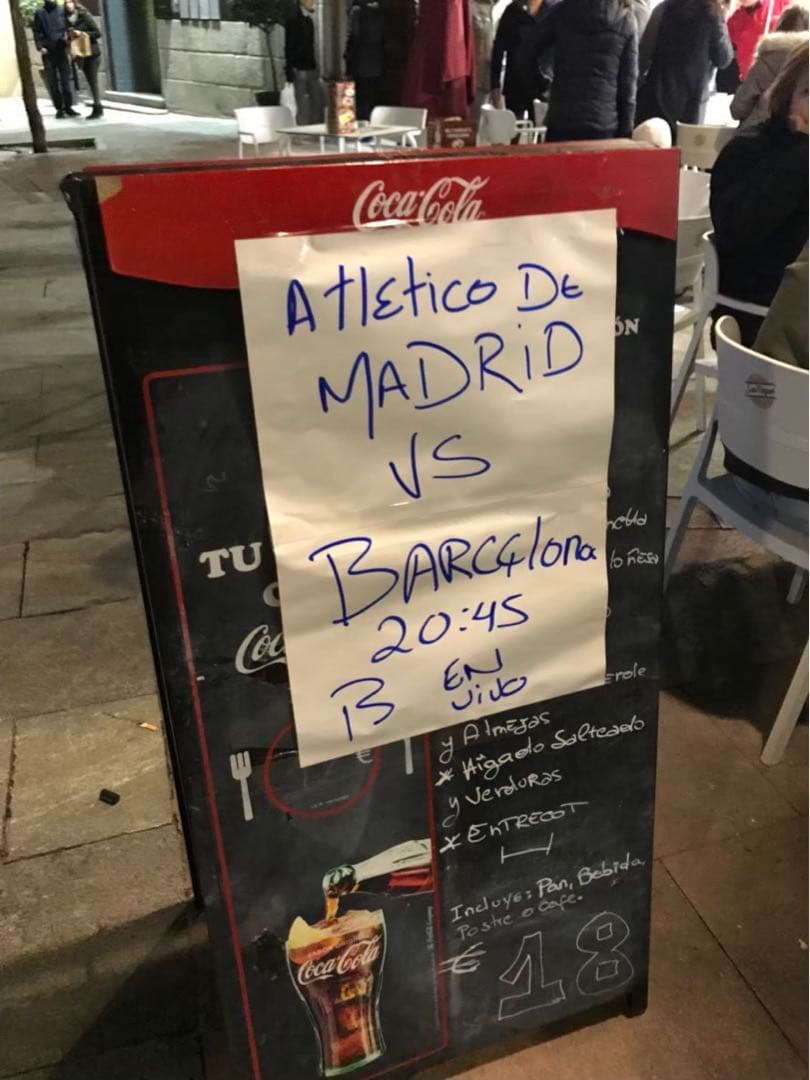 Coca-Cola
ATLETICO DE
MADRID
VS
BARCELONA
20:45
B EN
ViVO
ÓN
TU
y Almejas
* Higado Salteado
y Verduras
* ENTRECOT
Incluye: Pan, Bebida,
Postre o Cafe.
€ 18
€
Coca-Cola